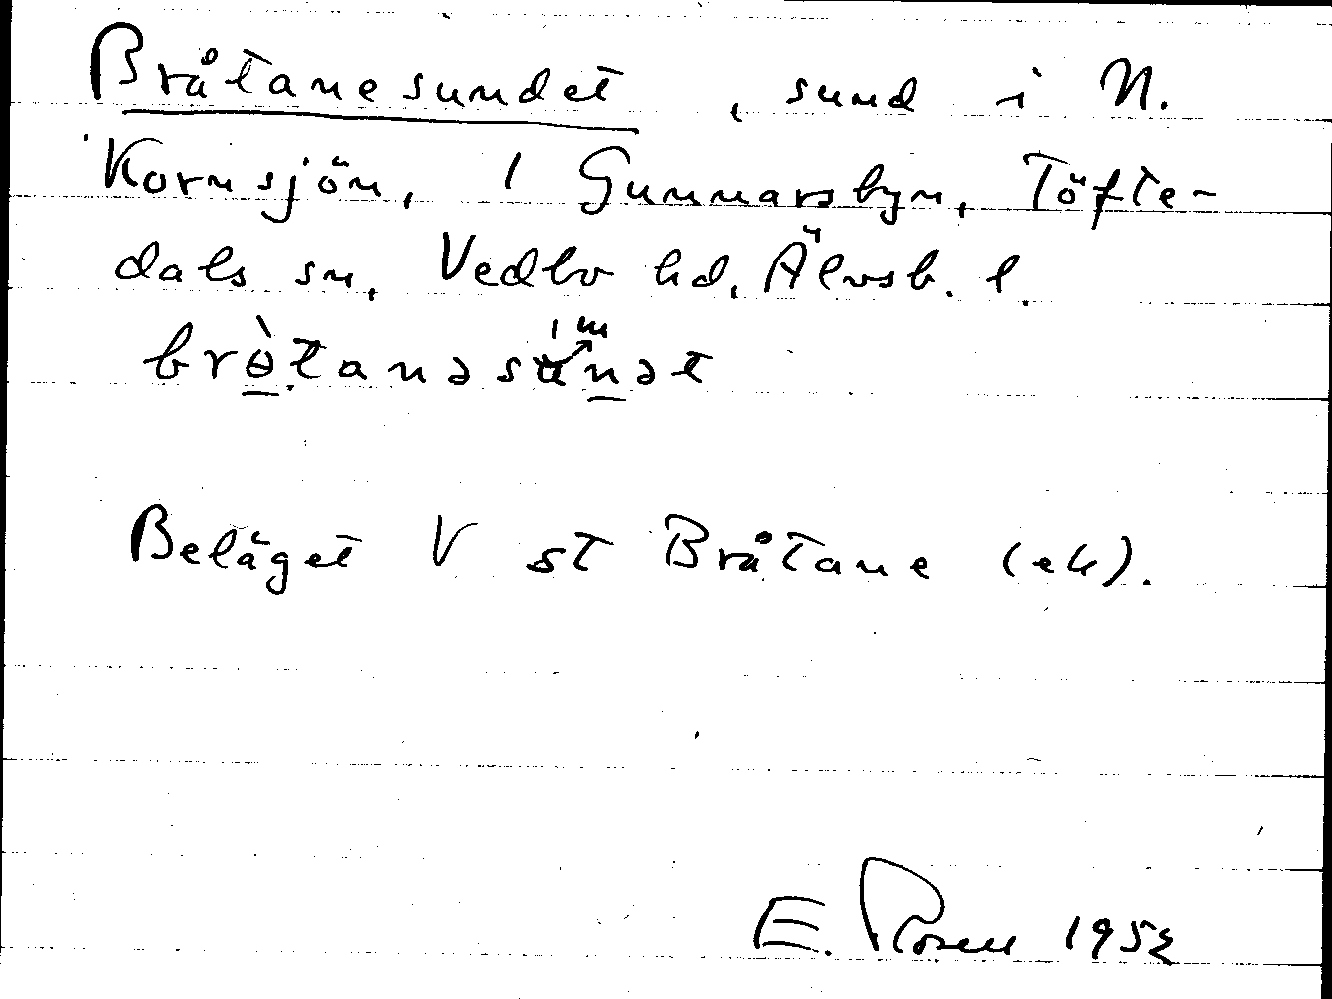 Bråtanesundet, sund i N.
Kornsjön, 1 Gunnarsbyn, Töfte-
dals sn, Vedbo hd, Älvsb. l.
Beläget V st Bråtane (ek).
E. Rosell 1952